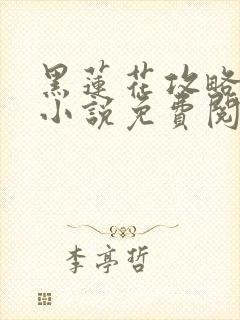 黑莲花攻略
小說免費閱
李亭哲